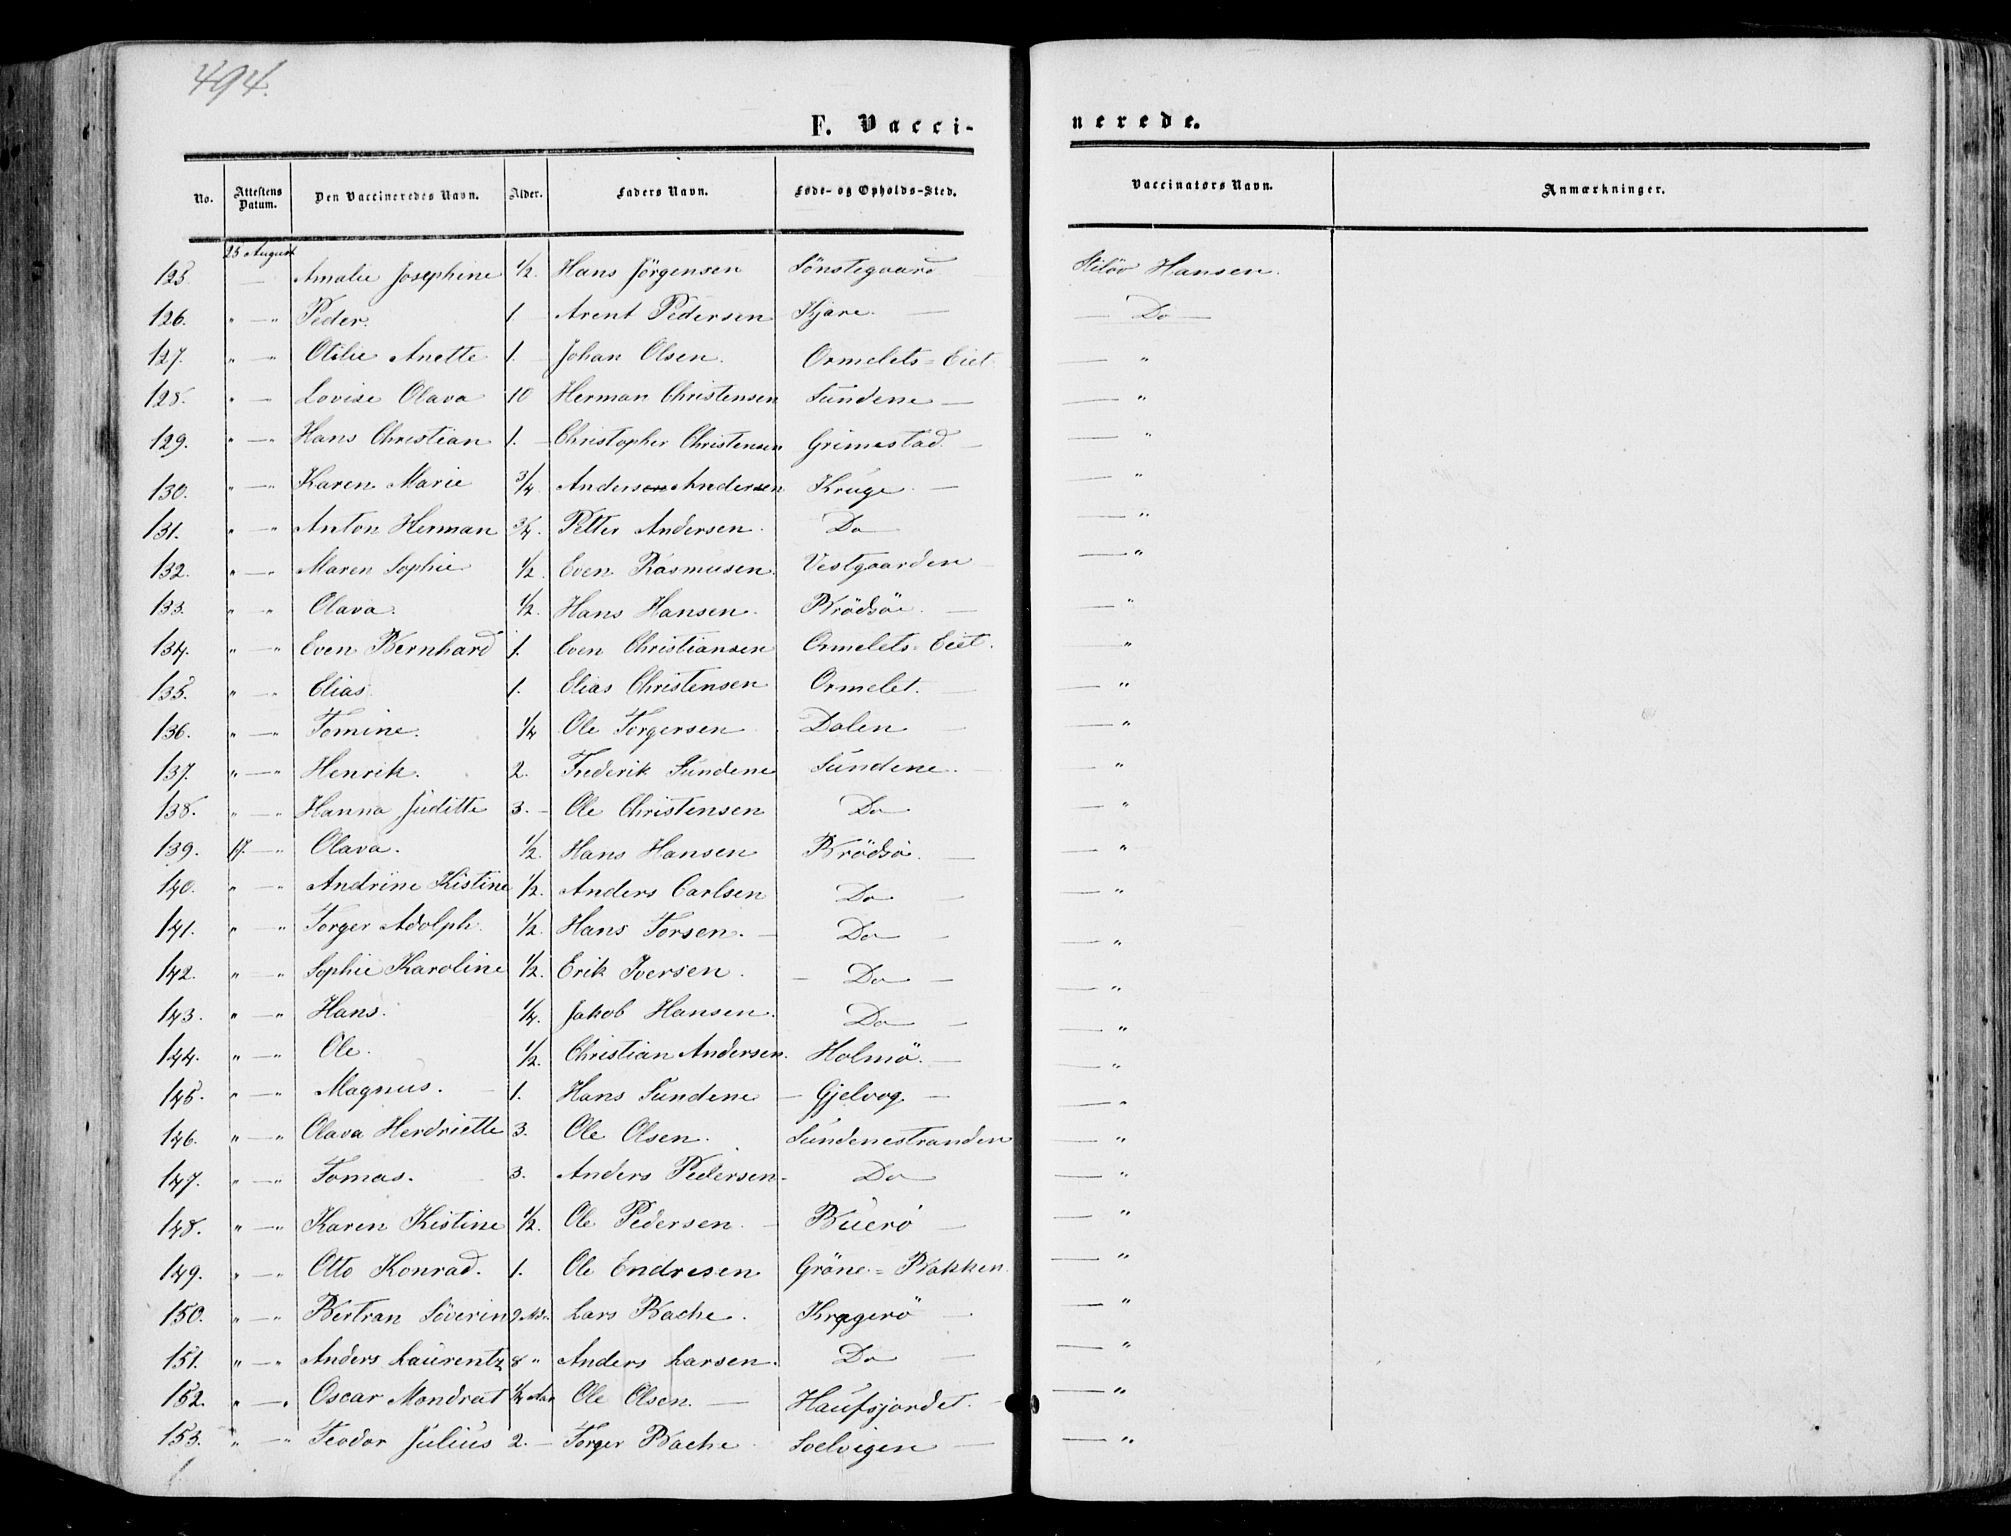 494.
F. Vacci-
nerede.
No. Attestens Datum. Den Vaccineredes Navn. Alder. Faders Navn. Føde- og Opholds-Sted. Vaccinators Navn. Anmærkninger.
25 August
125 — Amalie Josephine 1/2. Hans Jörgensen Sönstegaard — Hansen.
126. " — " Peder. 1. Arent Pedersen Kjære. — — Do —
127. " " Otilie Anette 1. Johan Olsen. Ormelets-Eiet. — "
128. " — Lovise Olava 10 Herman Christensen Sundene — — "
129. " — " Hans Christian 1. — Christopher Christensen Grimestad. — — "
130. " — " Karen Marie 3/4. Anders Andersen Kruge. — — "
131. " " Anton Herman 3/4. Petter Andersen. Do — — "
132. " — " Maren Sophie 1/2. Even Rasmusen. Vestgaarden — "
133. " " Olava. 1/2. Hans Hansen. Brödsöe. — — "
134. " — " Even Bernhard 1. Even Christiansen Ormelets-Eiet. — "
135. " — " Elias. 1. Elias Christensen Ormelet. — — "
136. " — " Tomine. 1/4 Ole Torgersen. Dalen — — "
137. " — " Henrik. 2. Frederik Sundene Sundene. — — "
138. " — " Hanna Juditte 3. — Ole Christensen Do — — "
139. 17. — " Olava. 1/2. Hans Hansen Brödsö. — — "
140. " — " Andrine Kistine 1/2. Anders Carlsen Do — — "
141. " — " Torger Adolph. 1/2. Hans Torsen. — Do — — "
142. " — " Sophie Karoline 1/2. Erik Iversen. — Do — — "
143. " — " Hans. 1/4. Jakob Hansen. Do — — "
144. " — " Ole. 1/2. Christian Andersen. Holmö. — — "
145. " — " Magnus. — 1. Hans Sundene — Gjelvog — — "
146. " — " Olava Herdriette 3. Ole Olsen. Sundenestranden — "
147. " — " Tomas. — 3. Anders Pedersen. Do — — "
148. " — " Karen Kistine 1/2. Ole Pedersen. — Buerö — — "
149. " — " Otto Konrad. 1. Ole Endresen Gröne-Bakken. — "
150. " — " Bertran Söverin 9 Mdr. Lars Bache. Kragerö — — "
151. " — " Anders Laurentz 8 " Anders Larsen. Do — — "
152. " — " Oscar Mondrat 1/4 Aar Ole Olsen. — Haufsjordet. — — "
153. " — " Teodor Julius 2. — Torger Bache. Solvigen — — "